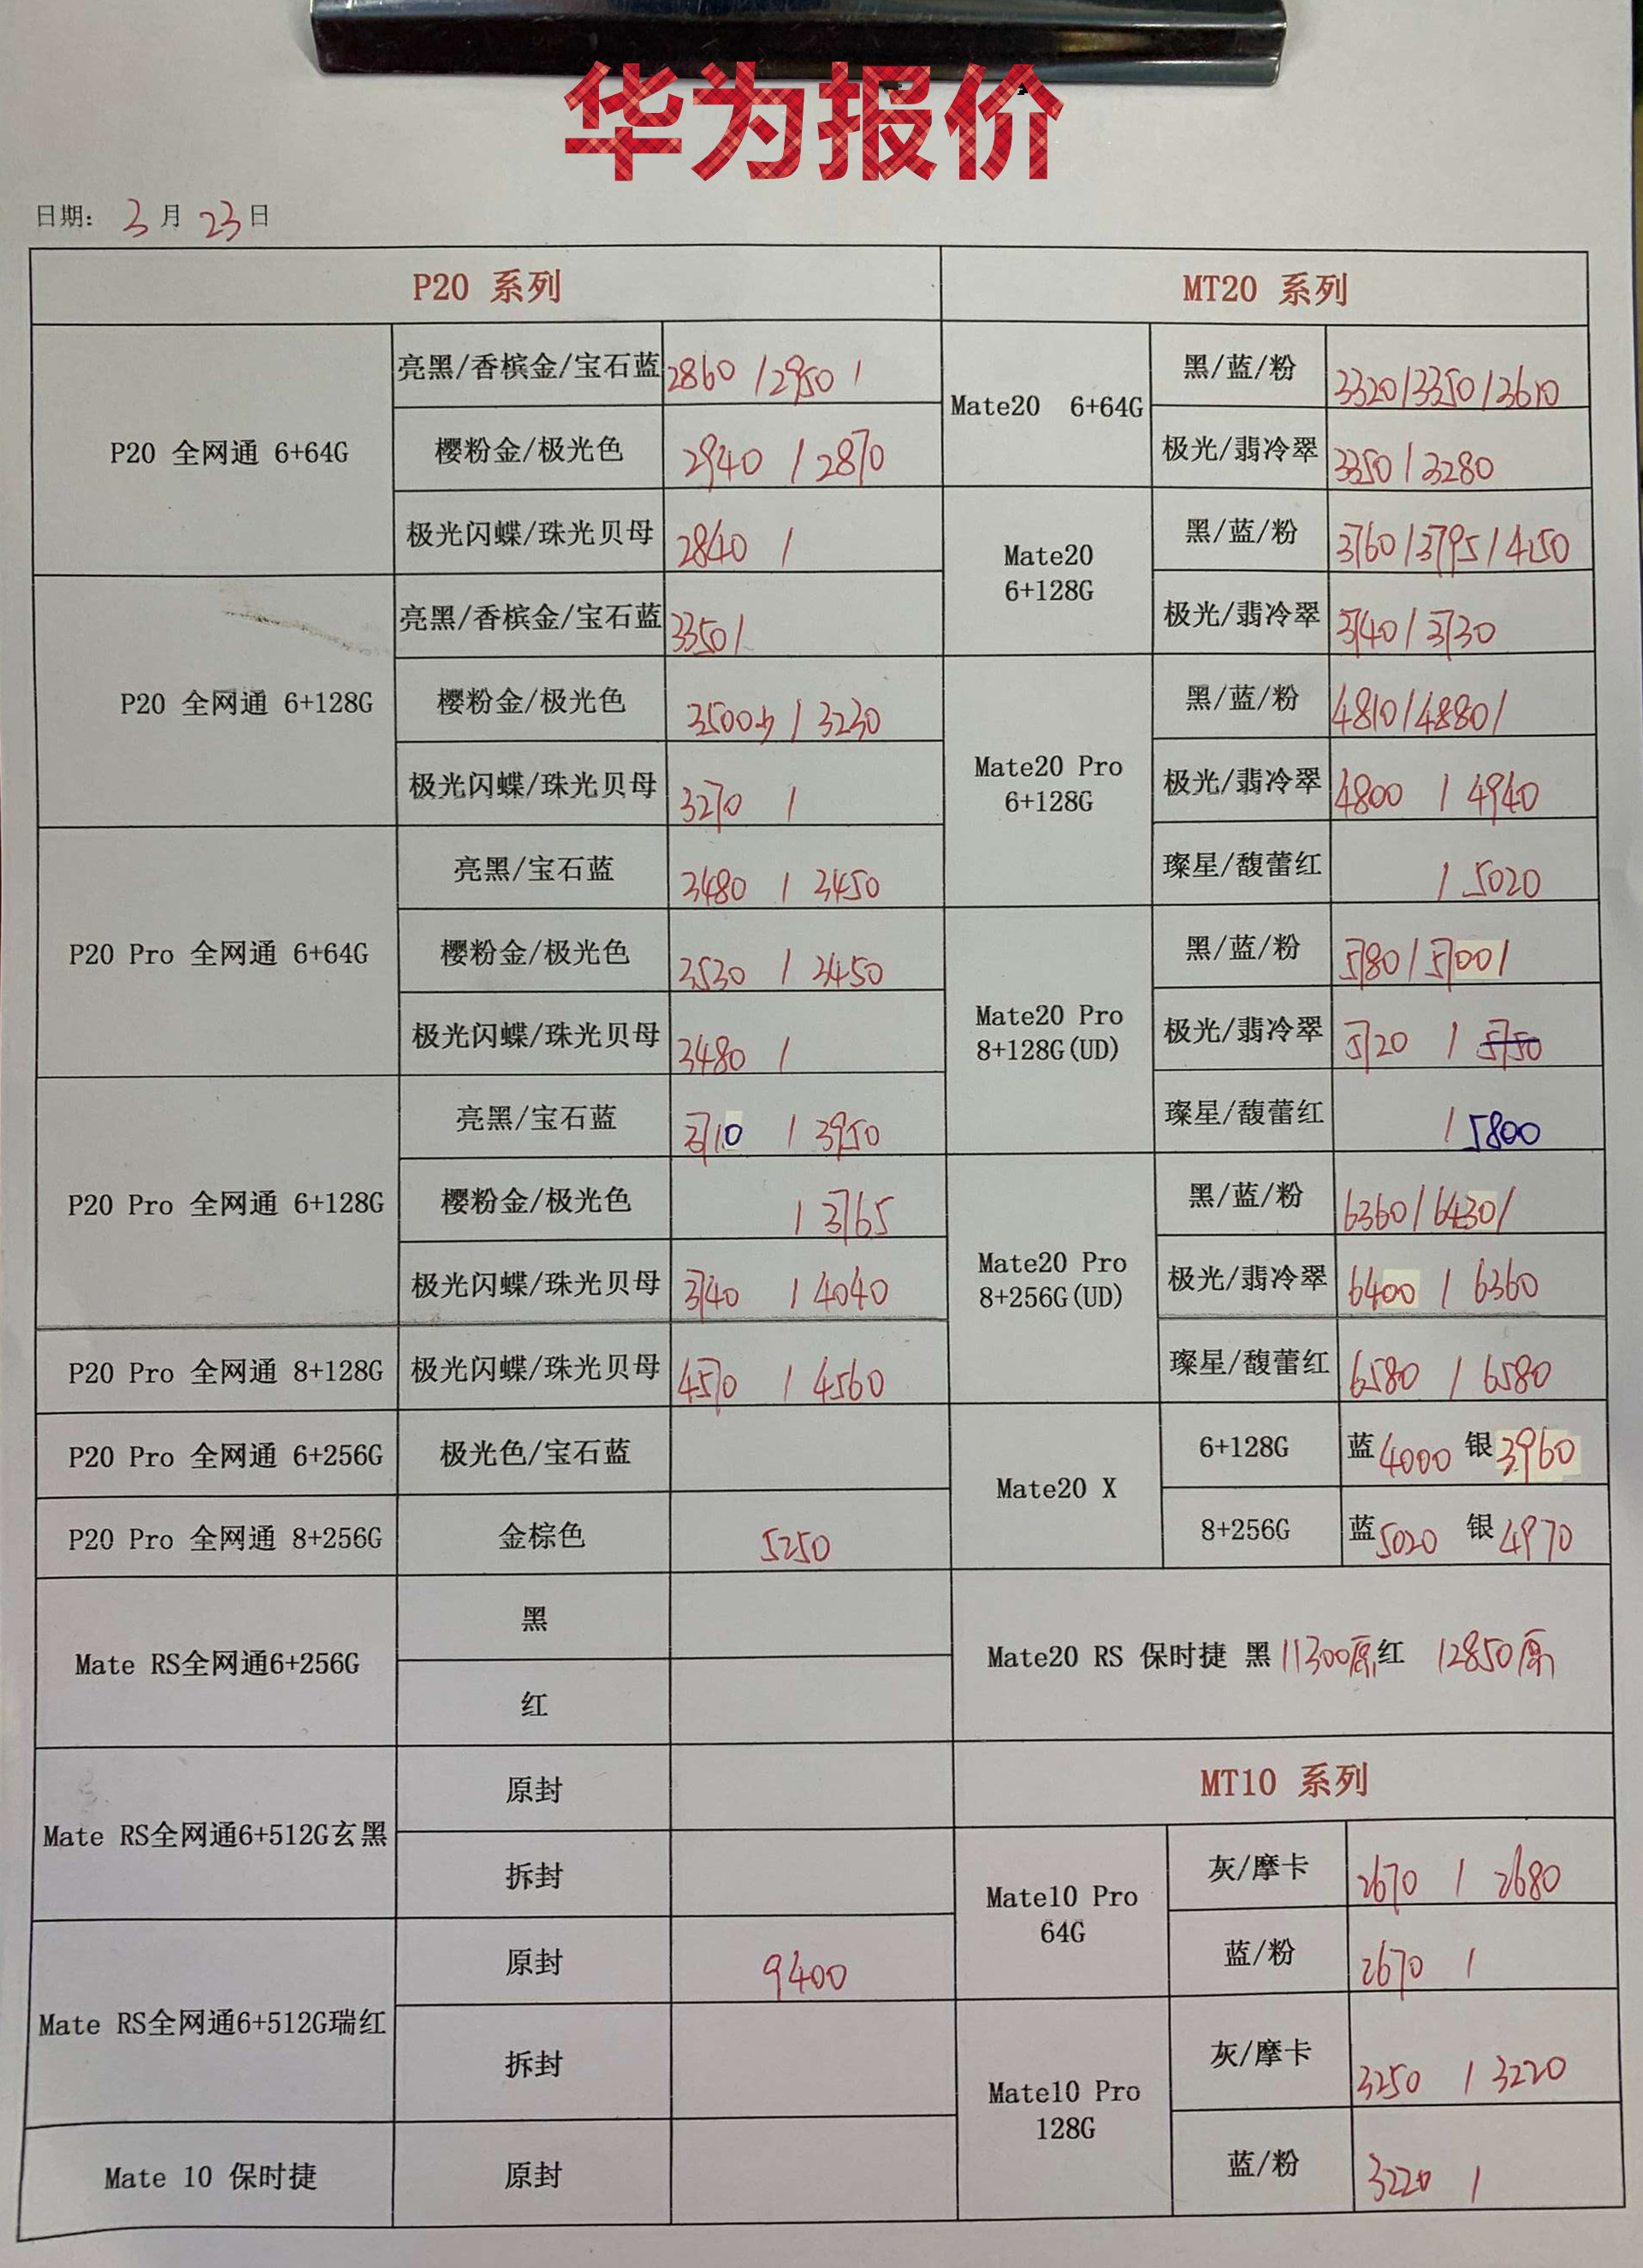 华为报价
日期: 3月23日
P20 系列
P20 全网通 6+64G
亮黑/香槟金/宝石蓝 2860 / 2950 /
樱粉金/极光色 2940 / 2870
极光闪蝶/珠光贝母 2840 /
P20 全网通 6+128G
亮黑/香槟金/宝石蓝 3350 /
樱粉金/极光色 3500 / 3230
极光闪蝶/珠光贝母 3270 /
P20 Pro 全网通 6+64G
亮黑/宝石蓝 3480 / 3450
樱粉金/极光色 3530 / 3450
极光闪蝶/珠光贝母 3480 /
P20 Pro 全网通 6+128G
亮黑/宝石蓝 3710 / 3950
樱粉金/极光色 / 3765
极光闪蝶/珠光贝母 3740 / 4040
P20 Pro 全网通 8+128G 极光闪蝶/珠光贝母 4570 / 4560
P20 Pro 全网通 6+256G 极光色/宝石蓝
P20 Pro 全网通 8+256G 金棕色 5250
Mate RS全网通6+256G
黑
红
Mate RS全网通6+512G玄黑
原封
拆封
Mate RS全网通6+512G瑞红
原封 9400
拆封
Mate 10 保时捷 原封
MT20 系列
Mate20 6+64G
黑/蓝/粉 3320/3350/3610
极光/翡冷翠 3350/3280
Mate20
6+128G
黑/蓝/粉 3760/3795/4250
极光/翡冷翠 3740/3730
Mate20 Pro
6+128G
黑/蓝/粉 4810/4880/
极光/翡冷翠 4800 / 4940
璨星/馥蕾红 / 5020
Mate20 Pro
8+128G(UD)
黑/蓝/粉 5780/5700/
极光/翡冷翠 5720 / 5750
璨星/馥蕾红 / 5800
Mate20 Pro
8+256G(UD)
黑/蓝/粉 6360/6430/
极光/翡冷翠 6400 / 6360
璨星/馥蕾红 6580 / 6580
Mate20 X
6+128G 蓝4000 银3960
8+256G 蓝5020 银4970
Mate20 RS 保时捷 黑11300原 红 12850原
MT10 系列
Mate10 Pro
64G
灰/摩卡 2670 / 2680
蓝/粉 2670 /
Mate10 Pro
128G
灰/摩卡 3250 / 3220
蓝/粉 3220 /